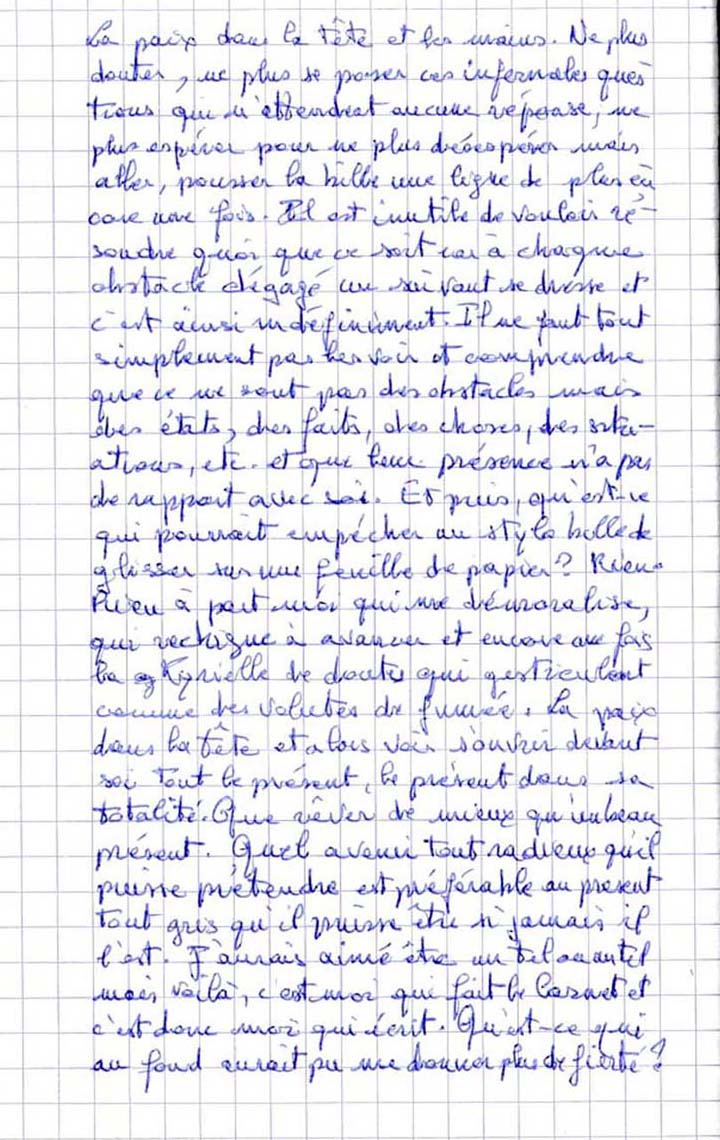 La paix dans la tête et les mains. Ne plus
douter, ne plus se poser ces infernales ques
tions qui n'attendent aucune réponse, ne
plus espérer pour ne plus désespérer mais
aller, pousser la bille une ligne de plus en
core une fois. Il est inutile de vouloir ré-
soudre quoi que ce soit car à chaque
obstacle dégagé un suivant se dresse et
c'est ainsi indéfiniment. Il ne faut tout
simplement pas les voir et comprendre
que ce ne sont pas des obstacles mais
des états, des faits, des choses, des situ-
ations, etc. et que leur présence n'a pas
de rapport avec soi. Et puis, qu'est-ce
qui pourrait empêcher un stylo bille de
glisser sur une feuille de papier? Rien.
Rien à part moi qui me démoralise,
qui rechigne à avancer et encore une fois
la kyrielle de doutes qui gesticulent
comme des volutes de fumée. La paix
dans la tête et alors voir s'ouvrir devant
soi tout le présent, le présent dans sa
totalité. Que rêver de mieux qu'un beau
présent. Quel avenir tout radieux qu'il
puisse prétendre est préférable au présent
tout gris qu'il puisse être si jamais il
l'est. J'aurais aimé être un tel ou un tel
mais voilà, c'est moi qui fait le carnet et
c'est donc moi qui écrit. Qu'est-ce qui
au fond aurait pu me donner plus de fierté?